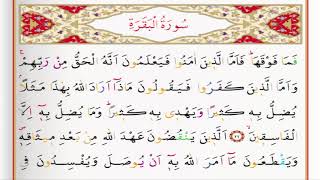 سُورَةُ الْبَقَرَةِ
فَمَا فَوْقَهَا ۜ فَاَمَّا الَّذ۪ينَ اٰمَنُوا فَيَعْلَمُونَ اَنَّهُ الْحَقُّ مِنْ رَبِّهِمْ ۚ
وَاَمَّا الَّذ۪ينَ كَفَرُوا فَيَقُولُونَ مَاذَٓا اَرَادَ اللّٰهُ بِهٰذَا مَثَلًا ۢ
يُضِلُّ بِه۪ كَث۪يرًا وَيَهْد۪ي بِه۪ كَث۪يرًا ۜ وَمَا يُضِلُّ بِه۪ٓ اِلَّا
الْفَاسِق۪ينَ ۙ ﴿٢٦﴾ اَلَّذ۪ينَ يَنْقُضُونَ عَهْدَ اللّٰهِ مِنْ بَعْدِ م۪يثَاقِه۪ۖ
وَيَقْطَعُونَ مَٓا اَمَرَ اللّٰهُ بِه۪ٓ اَنْ يُوصَلَ وَيُفْسِدُونَ فِي